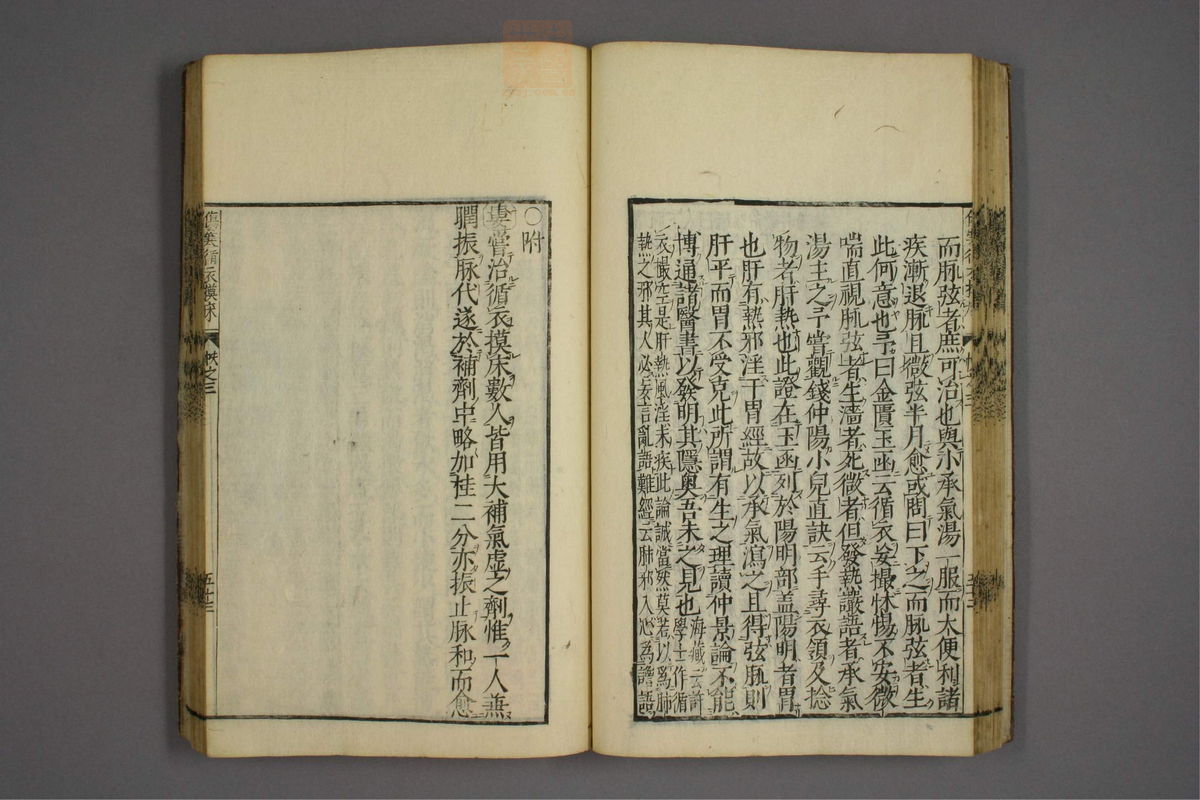 而脉弦者庶可治也與小承氣湯一服而大便利諸
疾漸退脉且微弦半月愈或問曰下之而脉弦者生
此何意也予曰金匱玉函云循衣妄撮怵惕不安微
喘直視脉弦者生濇者死微者但發熱讝語者承氣
湯主之予嘗觀錢仲陽小兒直訣云手尋衣領及捻
物者肝熱也此證在玉函列於陽明部蓋陽明者胃
也肝有熱邪淫于胃經故以承氣瀉之且得弦脉則
肝平而胃不受克此所謂有生之理讀仲景論不能
博通諸醫書以發明其隱奧吾未之見也
海藏云許
學士作循
衣撮空是肝熱風淫末疾此論誠當然莫若以爲肺
熱之邪其人必妄言亂語難經云肺邪入心為譫語
傷寒循衣摸床
帙之三
五十三
○附
嘗治循衣摸床數人皆用大補氣虛之劑惟一人無
瞤振脉代遂於補劑中略加桂二分亦振止脉和而愈